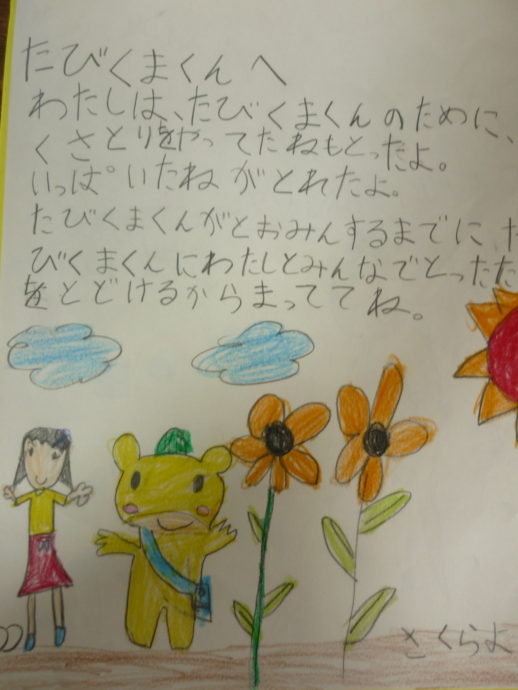 たびくまくんへ
わたしは、たびくまくんのために、
くさとりをやってたねもとったよ。
いっぱいたねがとれたよ。
たびくまくんがとおみんするまでに、た
びくまくんにわたしとみんなでとったた
をとどけるからまっててね。
さくらよ